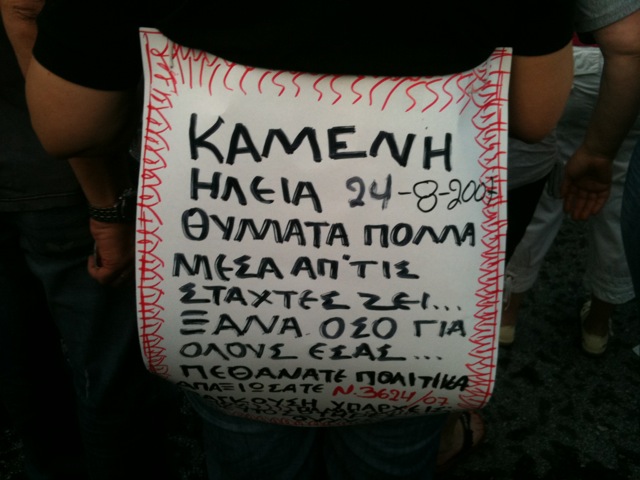 ΚΑΜΕΝΗ
ΗΛΕΙΑ 24-8-2007
ΘΥΜΑΤΑ ΠΟΛΛΑ
ΜΕΣΑ ΑΠ'ΤΙΣ
ΣΤΑΧΤΕΣ ΖΕΙ...
ΞΑΝΑ ΟΣΟ ΓΙΑ
ΟΛΟΥΣ ΕΣΑΣ...
ΠΕΘΑΝΑΤΕ ΠΟΛΙΤΙΚΑ
ΑΠΑΞΙΩΣΑΤΕ Ν.3624/07
ΥΠΑΡΧΕΙ